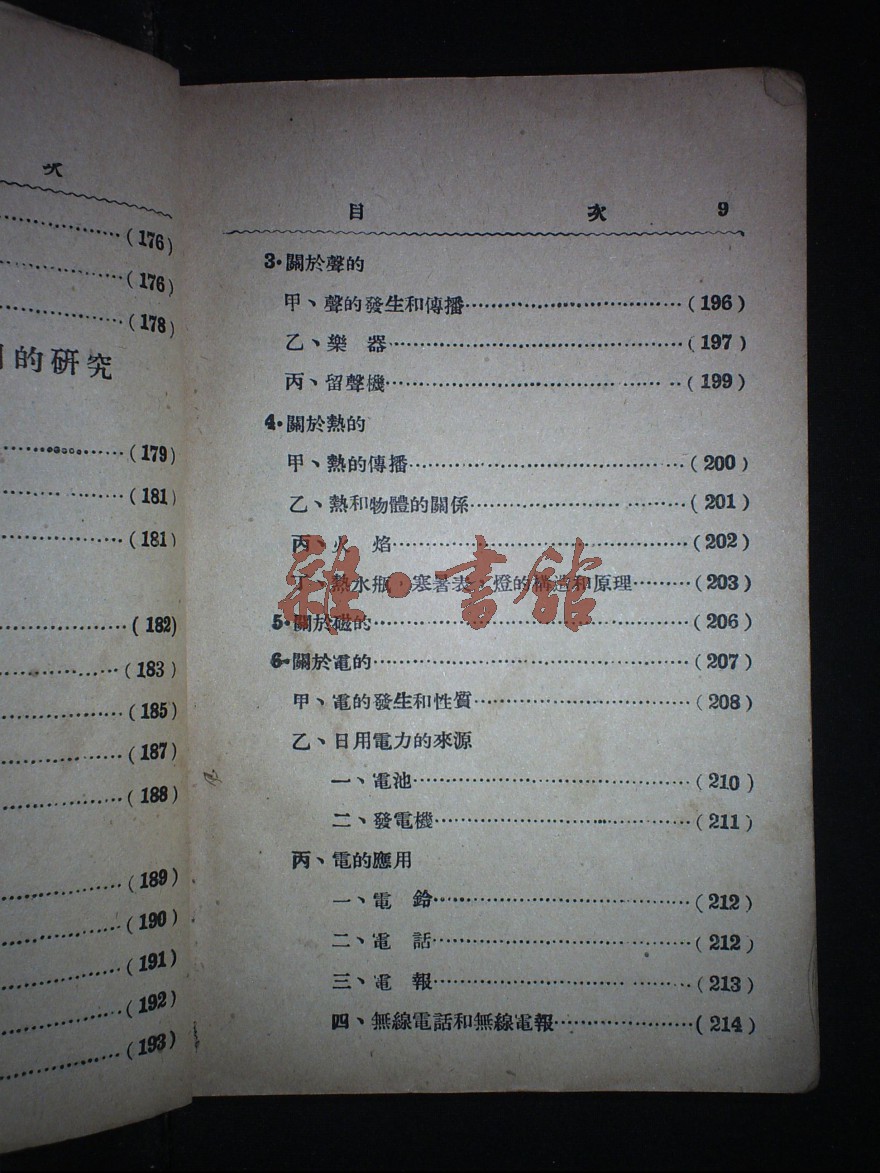 次
(176)
(176)
(178)
的研究
(179)
(181)
(181)
(182)
(183)
(185)
(187)
(188)
(189)
(190)
(191)
(192)
(193)
目 次 9
3·關於聲的
甲、聲的發生和傳播……(196)
乙、樂 器……(197)
丙、留聲機……(199)
4·關於熱的
甲、熱的傳播……(200)
乙、熱和物體的關係……(201)
丙、火 焰……(202)
丁、熱水瓶,寒暑表,燈的構造和原理……(203)
雜·書館
5·關於磁的……(206)
6·關於電的……(207)
甲、電的發生和性質……(208)
乙、日用電力的來源
一、電池……(210)
二、發電機……(211)
丙、電的應用
一、電 鈴……(212)
二、電 話……(212)
三、電 報……(213)
四、無線電話和無線電報……(214)